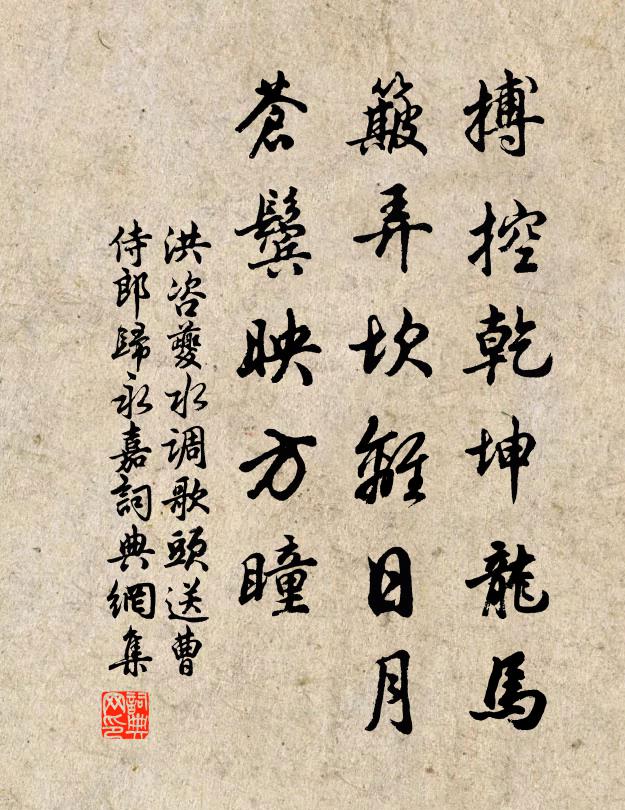 搏控乾坤龍馬
簸弄坎離日月
蒼鬓映方瞳
洪咨夔水调歌頭送曹
侍郎歸永嘉詞典網集
詞典网印